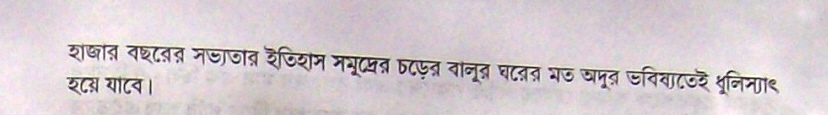 হাজার বছরের সভ্যতার ইতিহাস সমুদ্রের চড়ের বালুর ঘরের মত অদূর ভবিষ্যতেই ধূলিস্যাৎ
হয়ে যাবে।